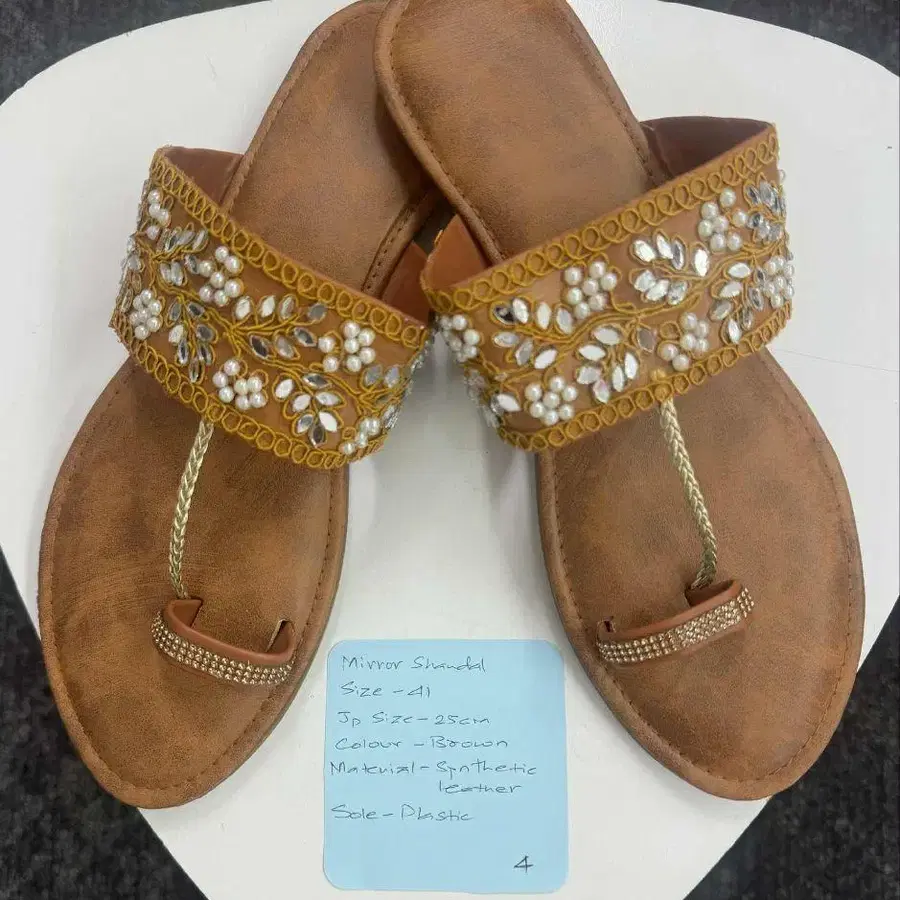 Mirror Shandal
Size - 41
Jp Size - 25cm
Colour - Brown
Material - Synthetic
leather
Sole - Plastic
4